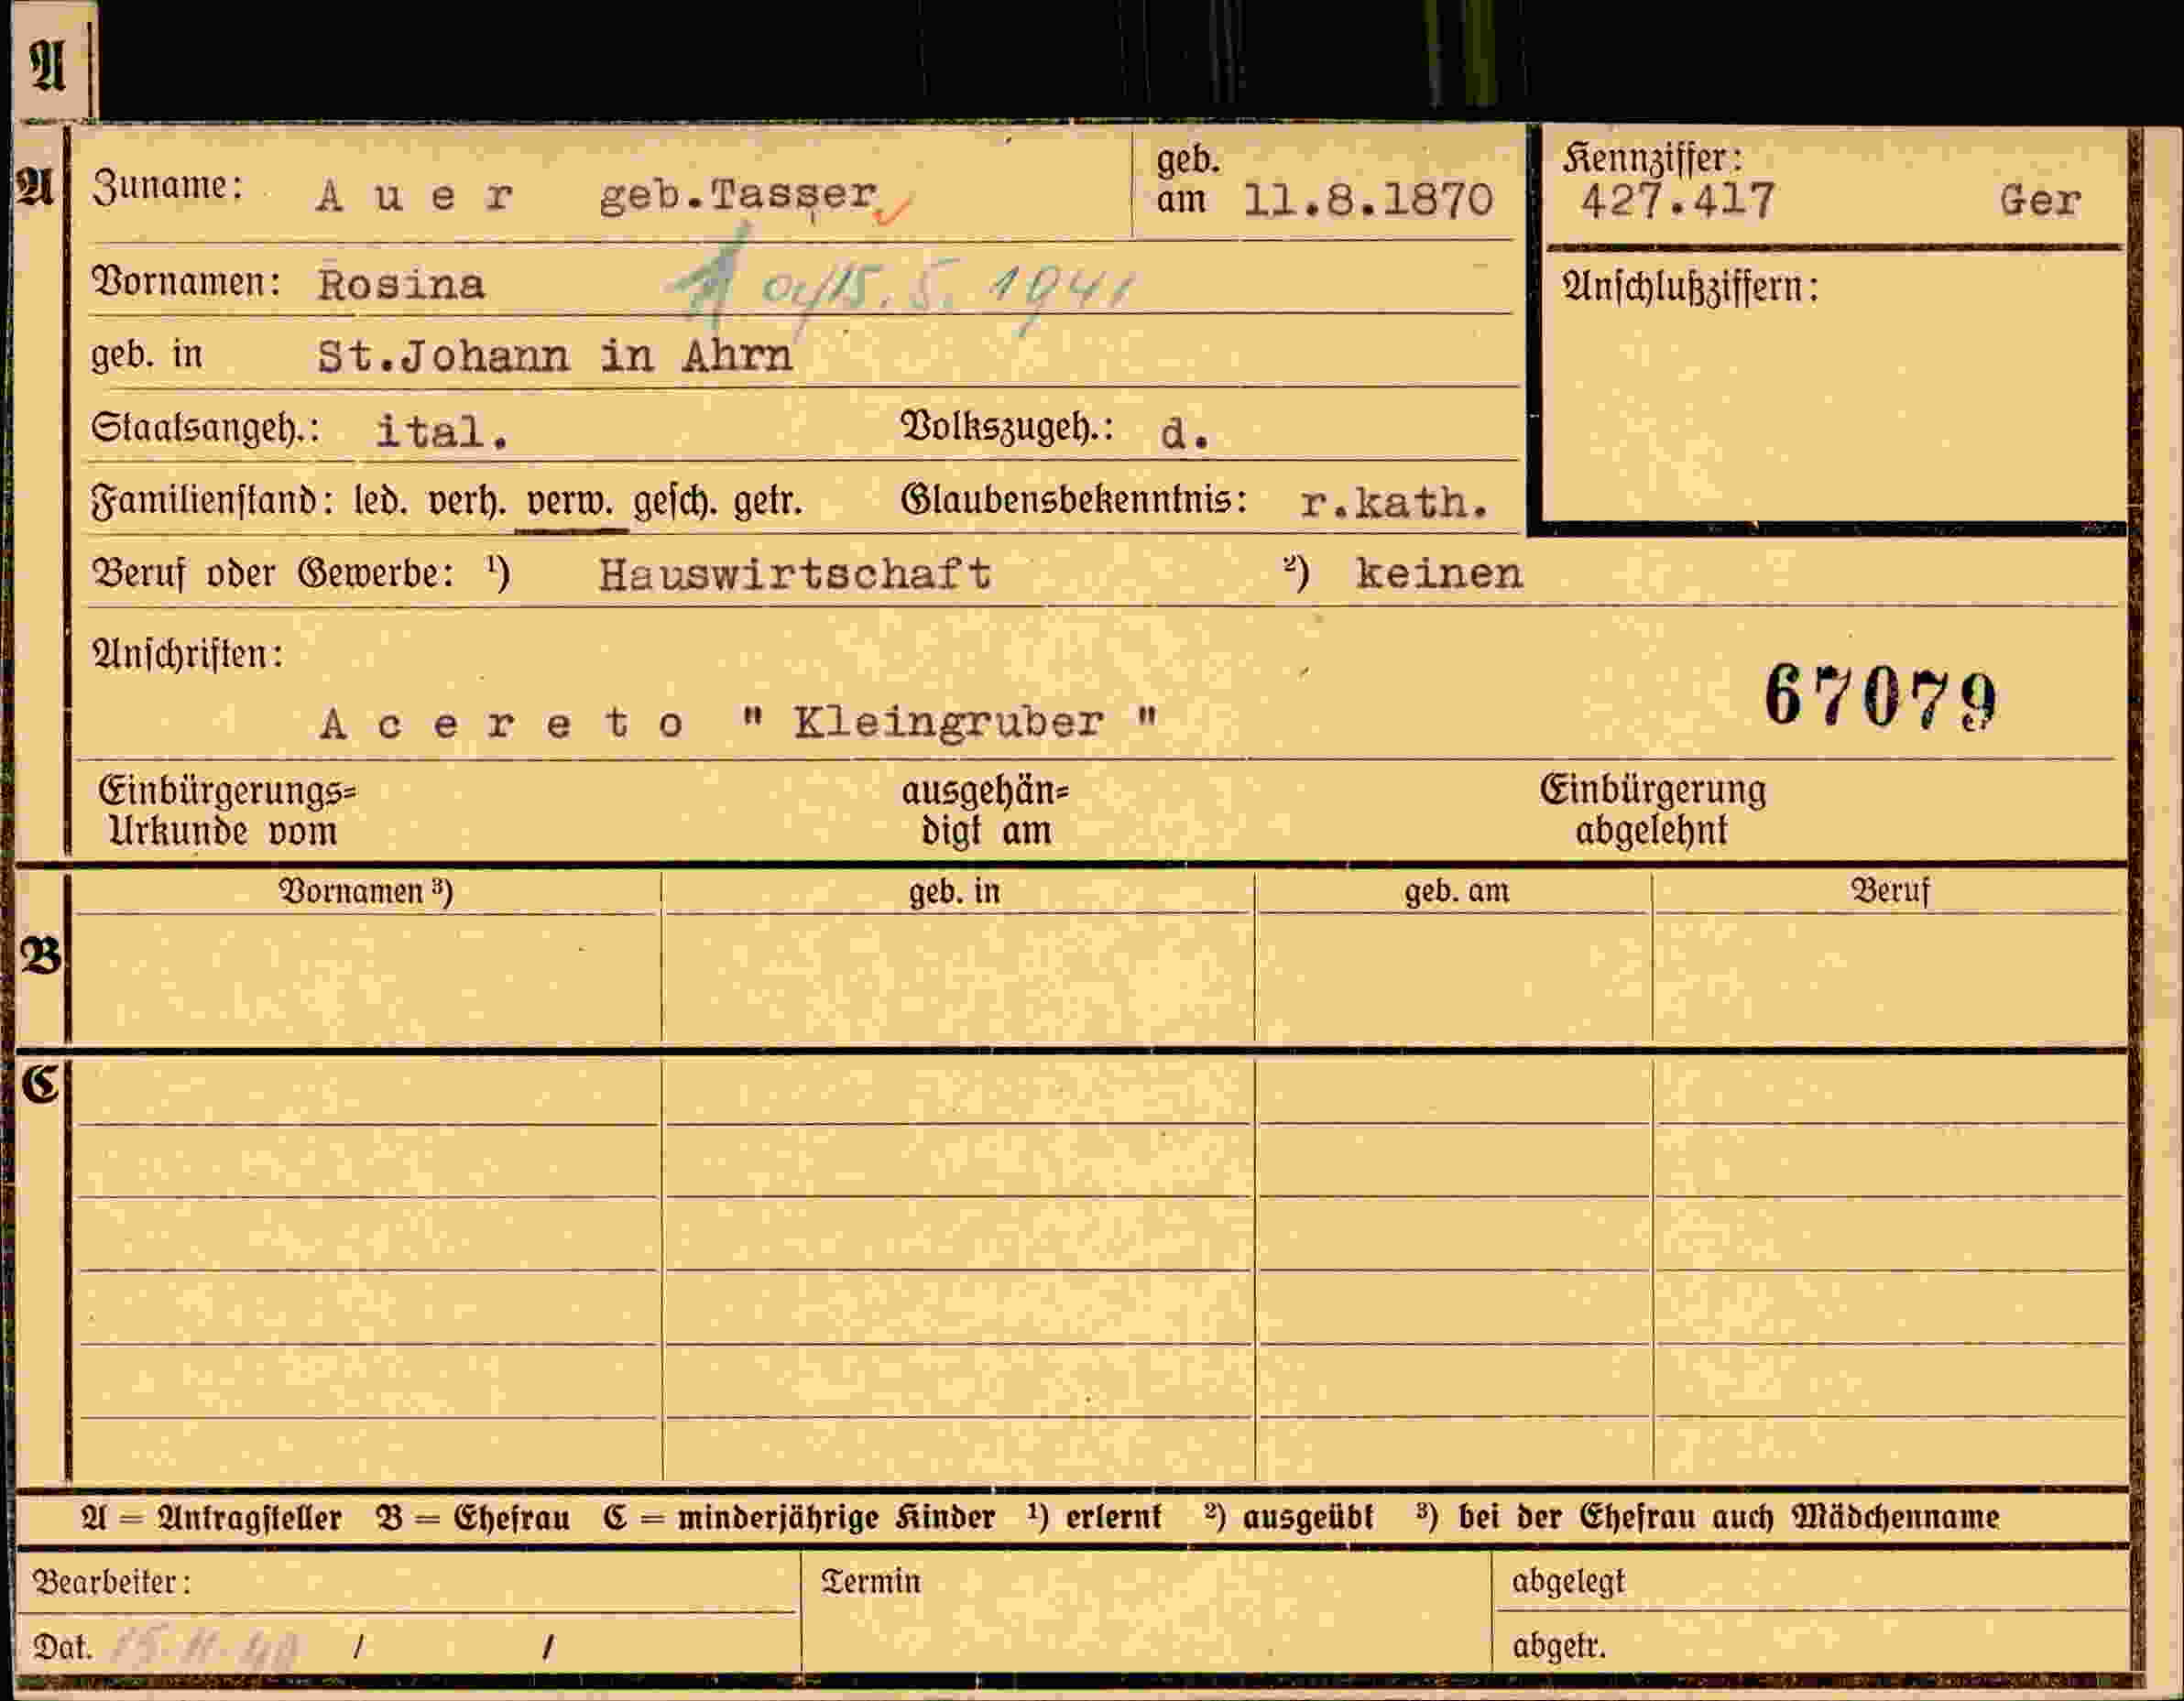 A
A
Zuname: A u e r geb.Tasser
geb.
am 11.8.1870
Kennziffer:
427.417 Ger
Vornamen: Rosina 15.5.1941
Anschlußziffern:
geb. in St.Johann in Ahrn
Staatsangeh.: ital. Volkszugeh.: d.
Familienstand: led. verh. verw. gesch. getr. Glaubensbekenntnis: r.kath.
Beruf oder Gewerbe: ¹) Hauswirtschaft ²) keinen
Anschriften:
67079
A c e r e t o " Kleingruber "
Einbürgerungs=
Urkunde vom
ausgehän=
digt am
Einbürgerung
abgelehnt
Vornamen ³) geb. in geb. am Beruf
B
C
A = Antragsteller B = Ehefrau C = minderjährige Kinder ¹) erlernt ²) ausgeübt ³) bei der Ehefrau auch Mädchenname
Bearbeiter: Termin abgelegt
Dat. 15.11.40 / / abgetr.